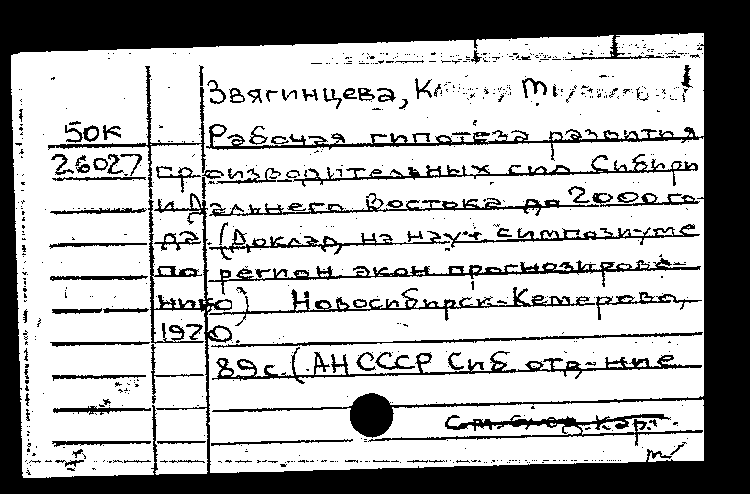 Звягинцева, К
50К Рабочая гипотеза развития
26027 производительных сил Сибири
и Дальнего Востока до 2000 го
да (Доклад на науч симпозиуме
по регион экон прогнозирова-
нию) Новосибирск-Кемерово,
1970.
89 с. (АН СССР Сиб отд-ние
См. след. карт.